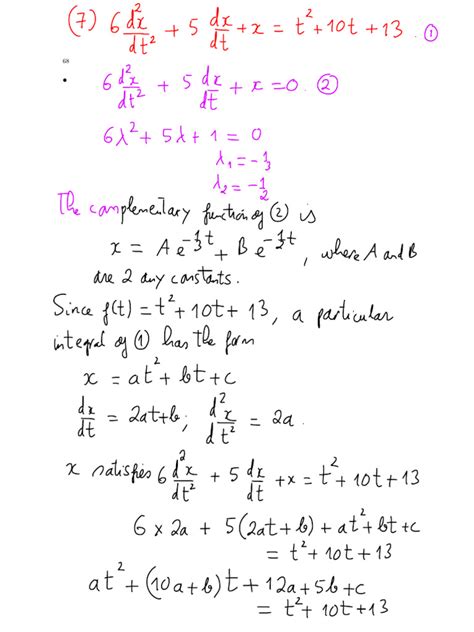 (7) 6 d²x/dt² + 5 dx/dt + x = t² + 10t + 13. ①
6 d²x/dt² + 5 dx/dt + x = 0. ②
6λ² + 5λ + 1 = 0
λ₁ = -1/3
λ₂ = -1/2
The complementary function of ② is
x = A e^(-1/3 t) + B e^(-1/2 t), where A and B
are 2 any constants.
Since f(t) = t² + 10t + 13, a particular
integral of ① has the form
x = at² + bt + c
dx/dt = 2at + b; d²x/dt² = 2a.
x satisfies 6 d²x/dt² + 5 dx/dt + x = t² + 10t + 13
6 × 2a + 5(2at + b) + at² + bt + c
= t² + 10t + 13
at² + (10a + b)t + 12a + 5b + c
= t² + 10t + 13